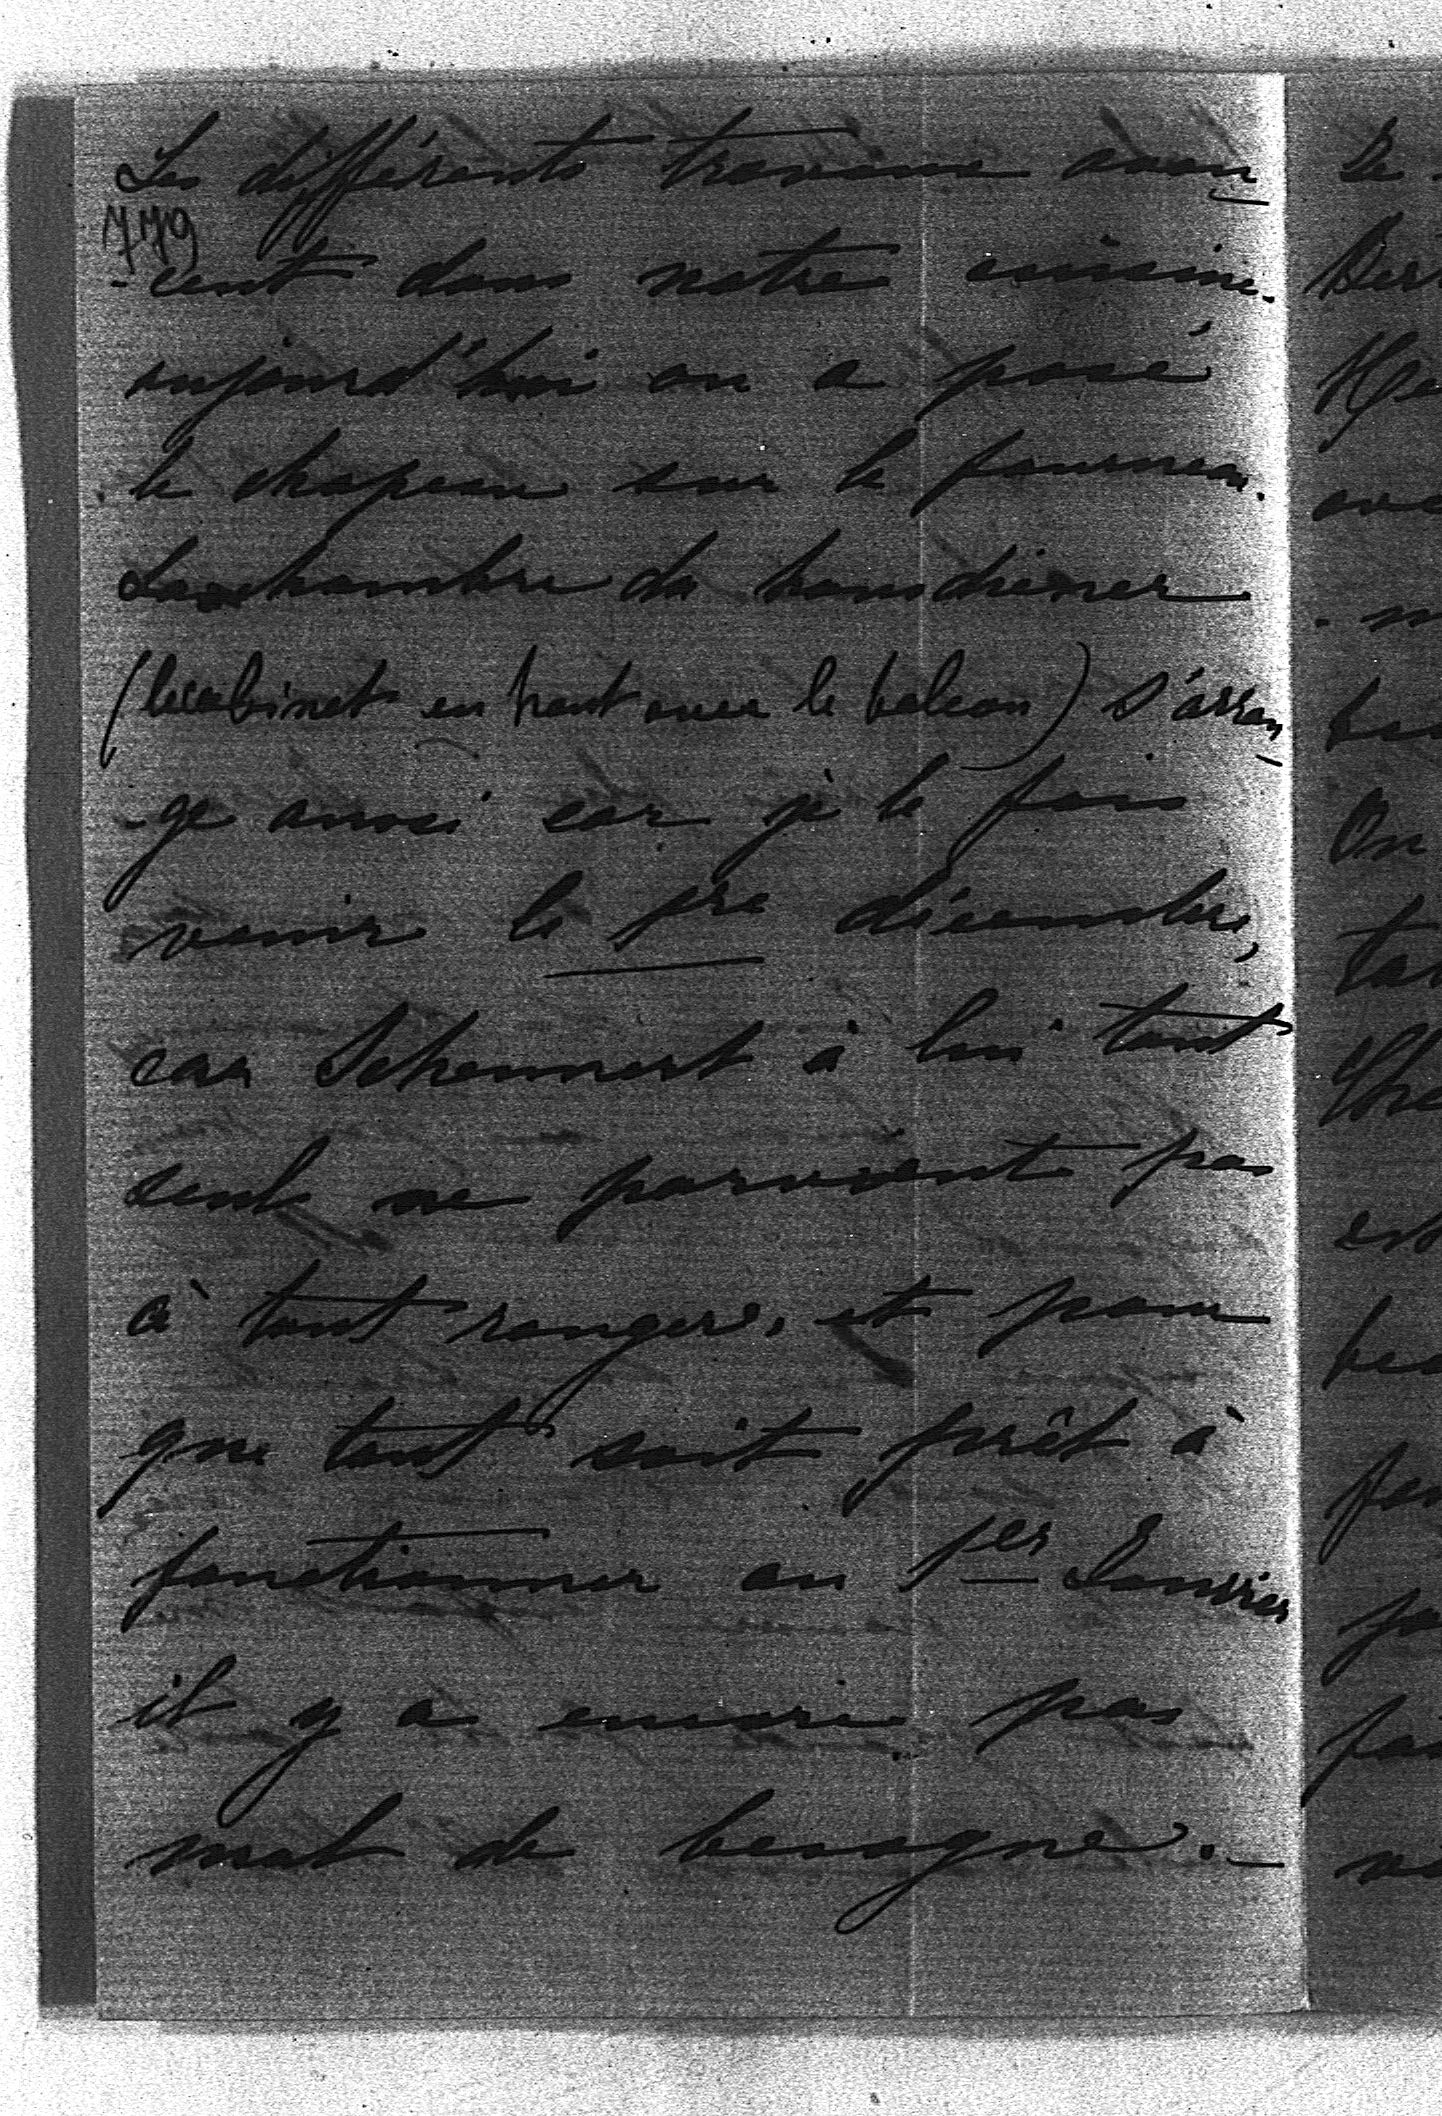 Les différents travaux avan
779
-cent dans notre cuisine.
aujourd'hui on a posé
le chapeau sur le fourneau.
La chambre du hausdiener
(le cabinet en haut avec le balcon) s'arran
-ge aussi car je le fais
venir le 1re décembre,
car Schennert à lui tout
seul ne parvient pas
à tout ranger, et pour
que tout soit prêt à
fonctionner au 1er Janvier
il y a encore pas
mal de besogne.
De
On